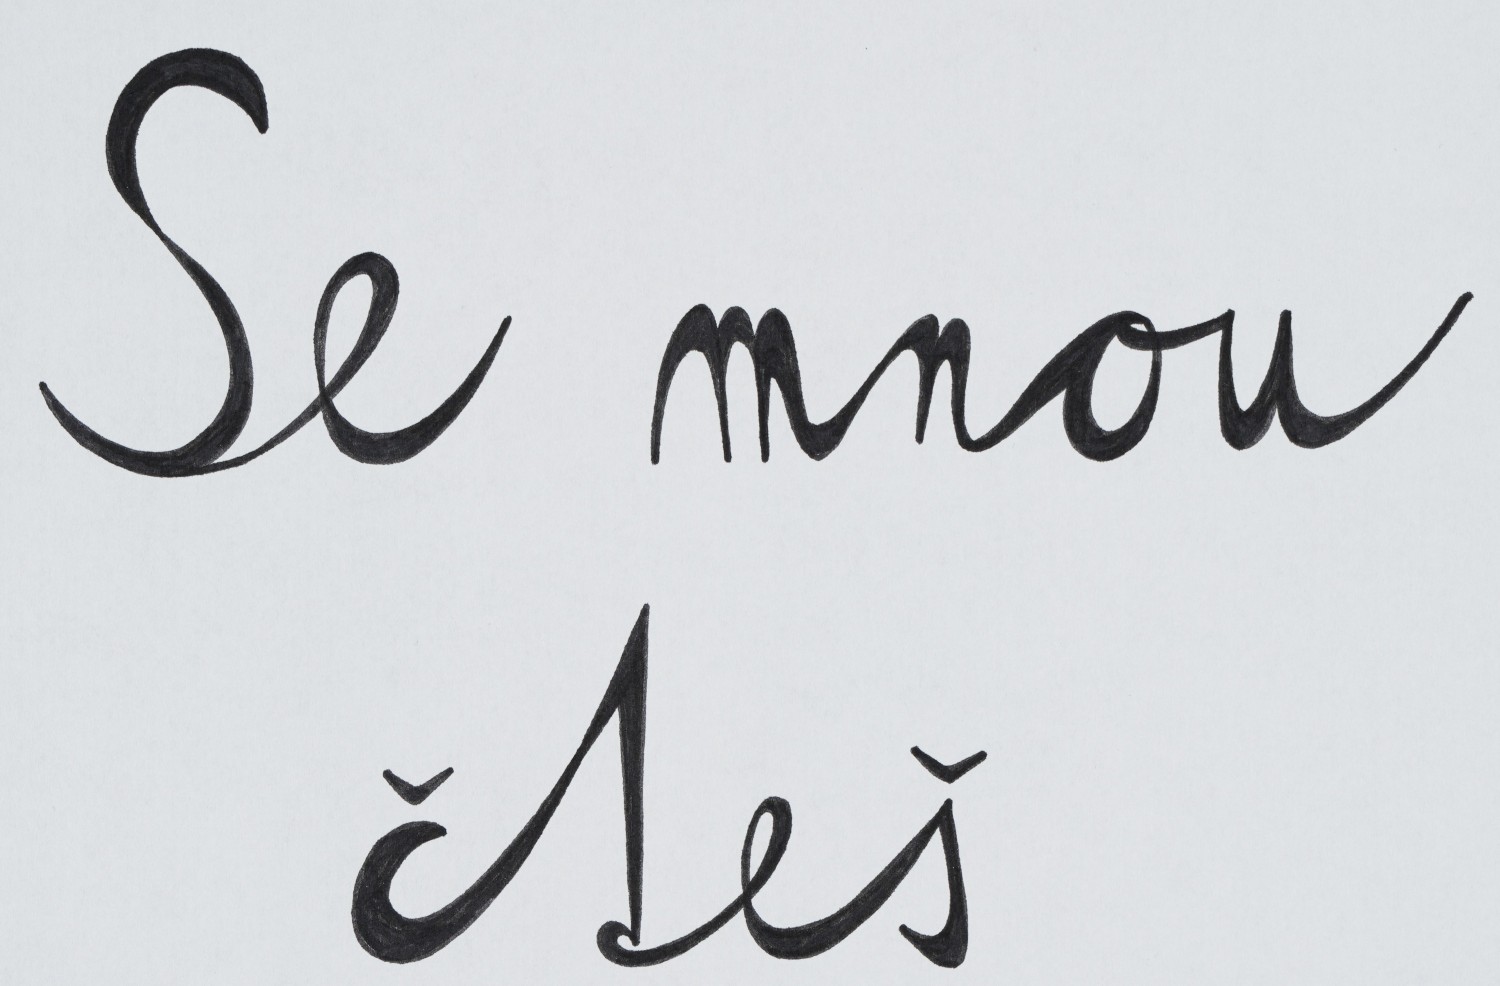 Se mnou
čteš